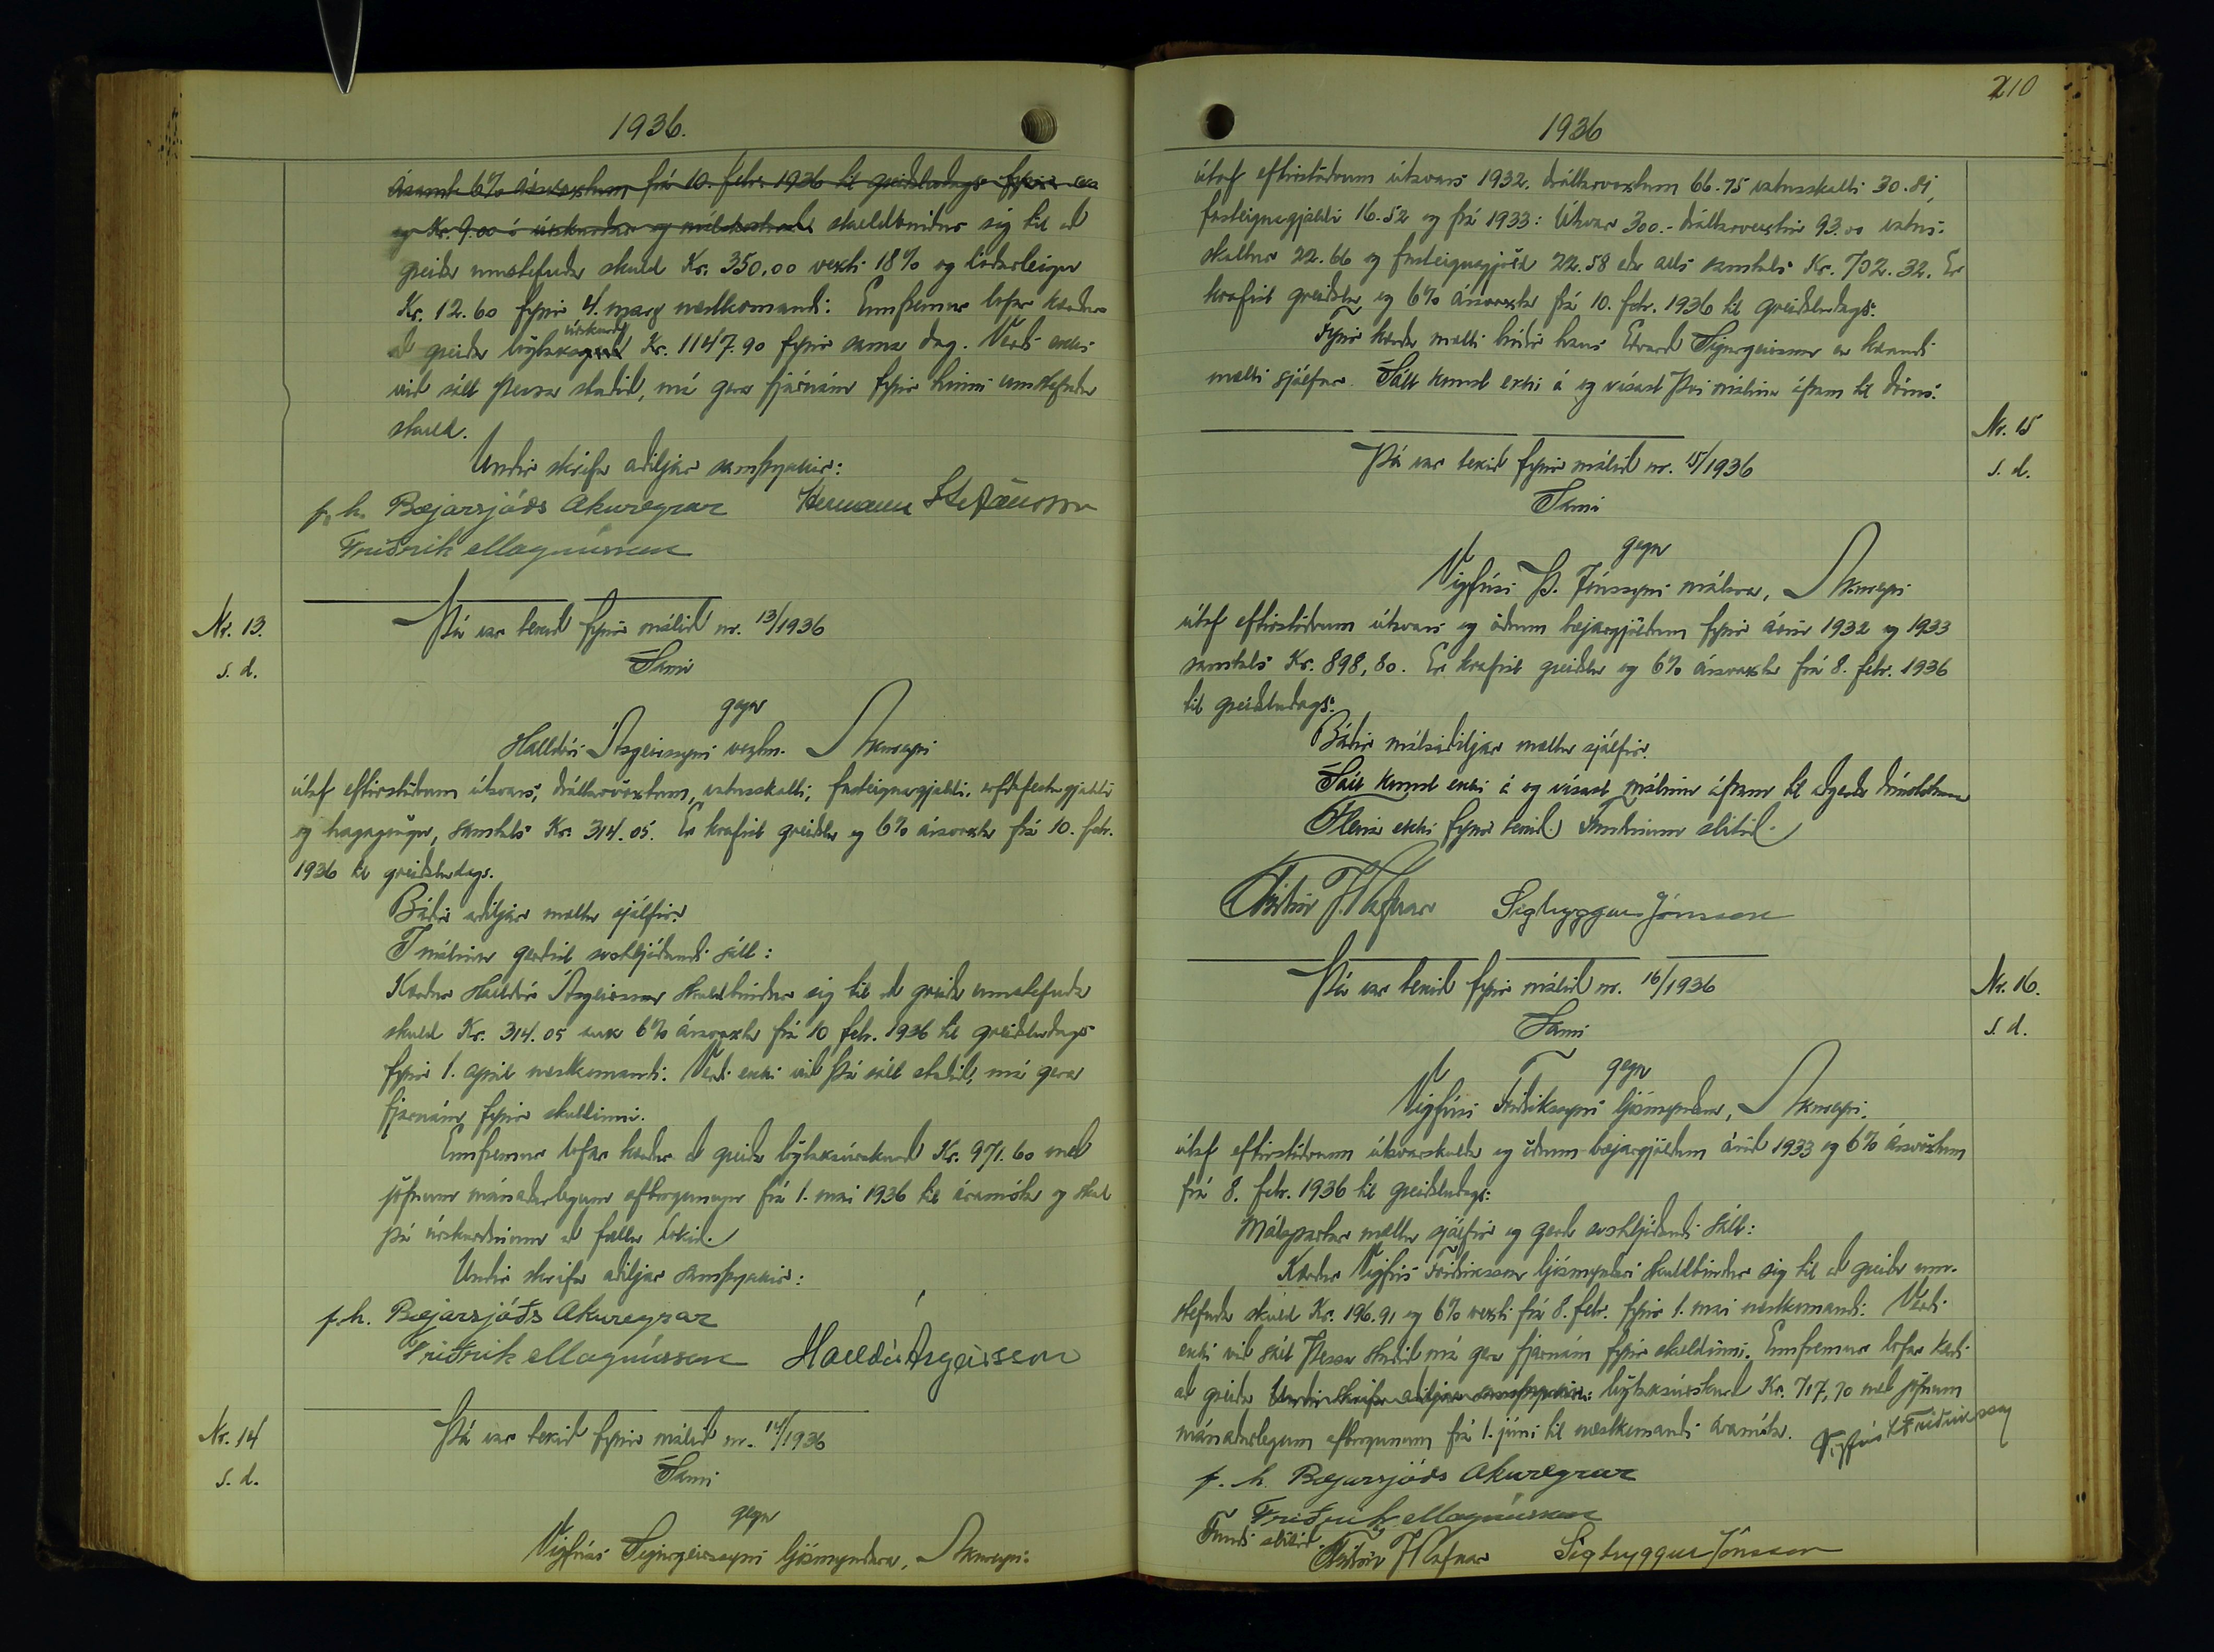 1936.
ásamt 6% ársvöxtum frá 10. febr. 1936 til greiðsludags fyrir
og Kr. 9.00 í úrskurðar og málskostnað skuldbindur sig til að
greiða umstefnda skuld Kr. 350.00 vexti 18% og lóðarleigu
Kr. 12.60 fyrir 4. marz næstkomandi. Ennfremur lofar kærður
að greiða lögtaks úrskurð Kr. 1147.90 fyrir sama dag. Verði ekki
við sátt þessa staðið, má gera fjárnám fyrir hinni umstefndu
skuld.
Undir skrifa aðiljar samþykkir:
f. h. Bæjarsjóðs Akureyrar Hermann Stefánsson
Friðrik Magnússon
Nr. 13.
s. d.
Þá var tekið fyrir málið nr. 13/1936
Sami
gegn
Halldóri Ásgeirssyni verkm. Akureyri
útaf eftirstöðvum útsvars, dráttarvöxtum, vatnsskatti, fasteignagjaldi, erfðafestugjaldi
og hagagöngu, samtals Kr. 314.05. Er krafist greiðslu og 6% ársvaxta frá 10. febr.
1936 til greiðsludags.
Báðir aðiljar mættu sjálfir.
Í málinu gerðist svohljóðandi sátt:
Kærður Halldór Ásgeirsson skuldbindur sig til að greiða umstefnda
skuld Kr. 314.05 auk 6% ársvaxta frá 10 febr. 1936 til greiðsludags
fyrir 1. apríl næstkomandi. Verði ekki við þá sátt staðið, má gera
fjárnám fyrir skuldinni.
Ennfremur lofar kærður að greiða lögtaksúrskurð Kr. 971.60 með
jöfnum mánaðarlegum afborgunum frá 1. maí 1936 til áramóta og skal
þá úrskurðinum að fullu lokið.
Undir skrifa aðiljar samþykkir:
f. h. Bæjarsjóðs Akureyrar
Friðrik Magnússon Halldór Ásgeirsson
Nr. 14
s. d.
Þá var tekið fyrir málið nr. 14/1936
Sami
gegn
Vigfúsi Sigurgeirssyni ljósmyndara, Akureyri.
210
1936
útaf eftirstöðvum útsvars 1932, dráttarvöxtum 66.75 vatnsskatti 30.81,
fasteignagjaldi 16.52 og frá 1933: Útsvar 300.- dráttarvextir 93.00 vatns-
skattur 22.66 og fasteignagjöld 22.58 eða alls samtals Kr. 702.32. Er
krafist greiðslu og 6% ársvaxta frá 10. febr. 1936 til greiðsludags.
Fyrir kærða mætti bróðir hans Edvard Sigurgeirsson en kærandi
mætti sjálfur. Sátt komst ekki á og vísast því málinu áfram til dóms.
Nr. 15
s. d.
Þá var tekið fyrir málið nr. 15/1936
Sami
gegn
Vigfúsi Þ. Jónssyni málara, Akureyri
útaf eftirstöðvum útsvars og öðrum bæjargjöldum fyrir árin 1932 og 1933
samtals Kr. 898,80. Er krafist greiðslu og 6% ársvaxta frá 8. febr. 1936
til greiðsludags.
Báðir málsaðiljar mættu sjálfir.
Sátt komst ekki á og vísast málinu áfram til aðgerða dómstólanna
Fleira ekki fyrir tekið. Fundinum slitið.
Kristján J. Hafnar Sigtryggur Jónsson
Nr. 16.
s. d.
Þá var tekið fyrir málið nr. 16/1936
Sami
gegn
Vigfúsi Friðrikssyni ljósmyndara, Akureyri.
útaf eftirstöðvum útsvarsskulda og öðrum bæjargjöldum árið 1933 og 6% ársvöxtum
frá 8. febr. 1936 til greiðsludags.
Málspartar mættu sjálfir og gerðu svohljóðandi sátt:
Kærður Vigfús Friðriksson ljósmyndari skuldbindur sig til að greiða um-
stefnda skuld Kr. 196.91 og 6% vexti frá 8. febr. fyrir 1. maí næstkomandi. Verði
ekki við sátt þessa staðið má gera fjárnám fyrir skuldinni. Ennfremur lofar kærði
að greiða Undir skrifa aðiljar samþykkir: lögtaksúrskurð Kr. 717,70 með jöfnum
mánaðarlegum afborgunum frá 1. júní til næstkomandi áramóta. Vigfús L Friðriksson
f. h. Bæjarsjóðs Akureyrar
Friðrik Magnússon
Fundi slitið. J Hafnar Sigtryggur Jónsson